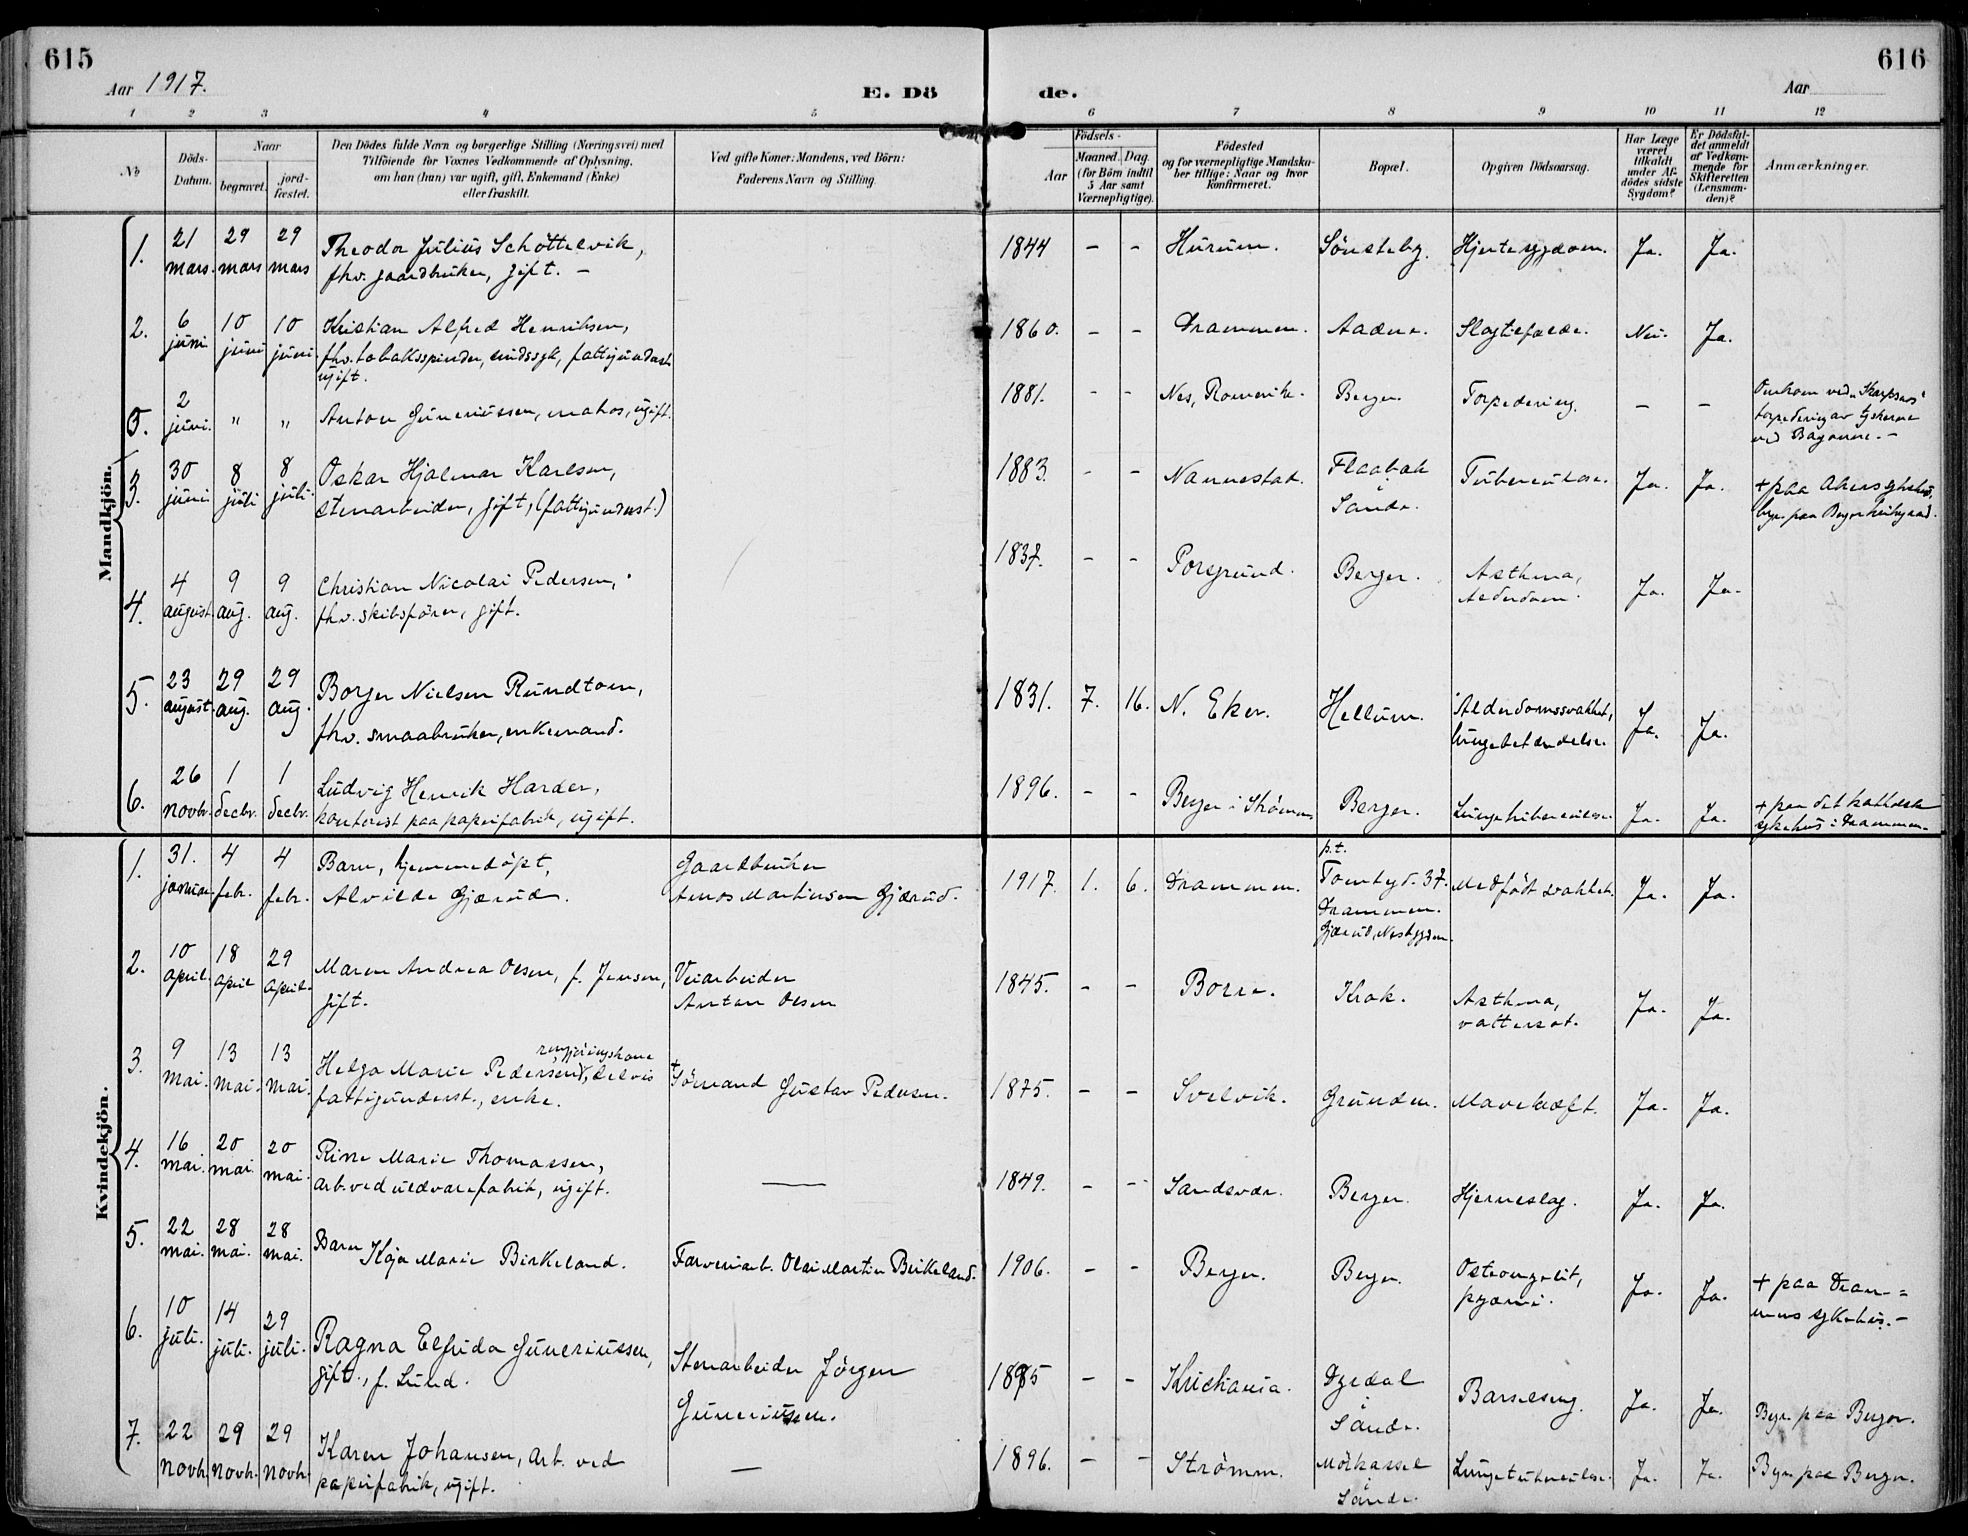 615
616
Aar 1917.
E. Dö
de.
Aar
1 2 3 4 5 6 7 8 9 10 11 12
No
Döds-Datum.
Naar
begravet.
jordfæstet.
Den Dödes fulde Navn og borgerlige Stilling (Næringsvei) med
Tilföiende for Voxnes Vedkommende af Oplysning,
om han (hun) var ugift, gift, Enkemand (Enke)
eller fraskilt.
Ved gifte Koner: Mandens, ved Börn:
Faderens Navn og Stilling.
Födsels-
Aar
Maaned. Dag.
(for Börn indtil
5 Aar samt
Værnepligtige).
Födested
og for værnepligtige Mandska-
ber tillige: Naar og hvor
konfirmeret.
Bopæl.
Opgiven Dödsaarsag.
Har Læge
været
tilkaldt
under Af-
dödes sidste
Sygdom?
Er Dödsfal-
det anmeldt
af Vedkom-
mende for
Skifteretten
(Lensman-
den)?
Anmærkninger.
Mandkjön.
1. 21 mars. 29 mars 29 mars Theodor Julius Schöttelvik,
fhv. gaardbruker, gift. —
1844 – – Hurum. Sönsteby. Hjertesygdom. Ja. Ja.
2. 6 juni 10 juni 10 juni. Kristian Alfred Henriksen,
fhv. tobaksspinder, sindssyk, fattigunderst.
ugift.
1860. – – Drammen. Aadne. Slagtilfælde. Nei. Ja.
0. 2 juni. " " Anton Guneriussen, matros, ugift.
1881. – – Nes, Romerike. Berger. Torpedering. – –
Omkom ved "Skarpsnos"
torpedering av tyskerne
ved Bayonne. –
3. 30 juni 8 juli 8 juli. Oskar Hjalmar Karlsen,
stenarbeider, gift, (fattigunderst.)
1883. – – Nannestad. Flaabak
i
Sande. Tuberkulose. Ja. Ja.
+ paa Akers sykehus,
begr. paa Berger kirkegaard.
4. 4 august. 9 aug. 9 aug. Christian Nicolai Pedersen,
fhv. skibsförer, gift.
1837. – – Porsgrund. Berger. Asthma,
Alderdom. Ja. Ja.
5. 23 august. 29 aug. 29 aug. Borger Nielsen Rundtom,
fhv. smaabruker, enkemand.
1831. 7. 16. N. Eker. Hellum. Alderdomssvakhet,
lungebetændelse. Ja. Ja.
6. 26 novbr. 1 decbr. 1 decbr. Ludvig Henrik Harder,
kontorist paa papirfabrik, ugift.
1896. – – Berger i Strömm. Berger. Lungetuberkulose. Ja. Ja.
+ paa det katholske
sykehus i Drammen.
Kvindekjön.
1. 31. januar. 4 febr. 4 febr. Barn, hjemmedöpt,
Alvilde Gjærud.
Gaardbruker
Amos Martinsen Gjærud.
1917. 1. 6. Drammen. p.t.
Tomtegd. 37.
Drammen.
Gjærud, Nesbygden. Medfödt svakhet. Ja. Ja.
2. 10 april. 18 april 29 april. Maren Andrea Olsen, f. Jensen,
gift.
Veiarbeider
Anton Olsen
1845. – – Borre. Krok. Asthma,
vattersot. Ja. Ja.
3. 9 mai. 13 mai. 13 mai. rengjöringskone
Helga Marie Pedersen, delvis
fattigunderst., enke.
+ Sömand Gustav Pedersen.
1875. – – Svelvik. Grunden. Mavekræft. Ja. Ja.
4. 16 mai. 20 mai. 20 mai. Rine Marie Thomassen,
arb. ved uldvarefabrik, ugift.
—
1849. – – Sandsvær. Berger. Hjerneslag. Ja. Ja.
5. 22 mai. 28 mai. 28 mai. Barn Kaja Marie Birkeland.
Farveriarb. Olai Martin Birkeland.
1906. – – Berger. Berger. Osteomyelit,
pyæmi. Ja. Ja.
+ paa Dram=
mens sykehus. –
6. 10 juli. 14 juli. 29 juli. Ragna Elfrida Guneriussen,
gift, f. Lund.
Stenarbeider Jörgen
Guneriussen.
1895 – – Kristiania. Dyrdal
i
Sande. Barselseng. Ja. Ja. Begr. paa Berger.
7. 22 novbr. 29 novbr. 29 novbr. Karen Johansen, arb. ved
papirfabrik, ugift.
—
1896. – – Strömm. Mörkassel
i
Sande. Lungetuberkulose. Ja. Ja. Begr. paa Berger.